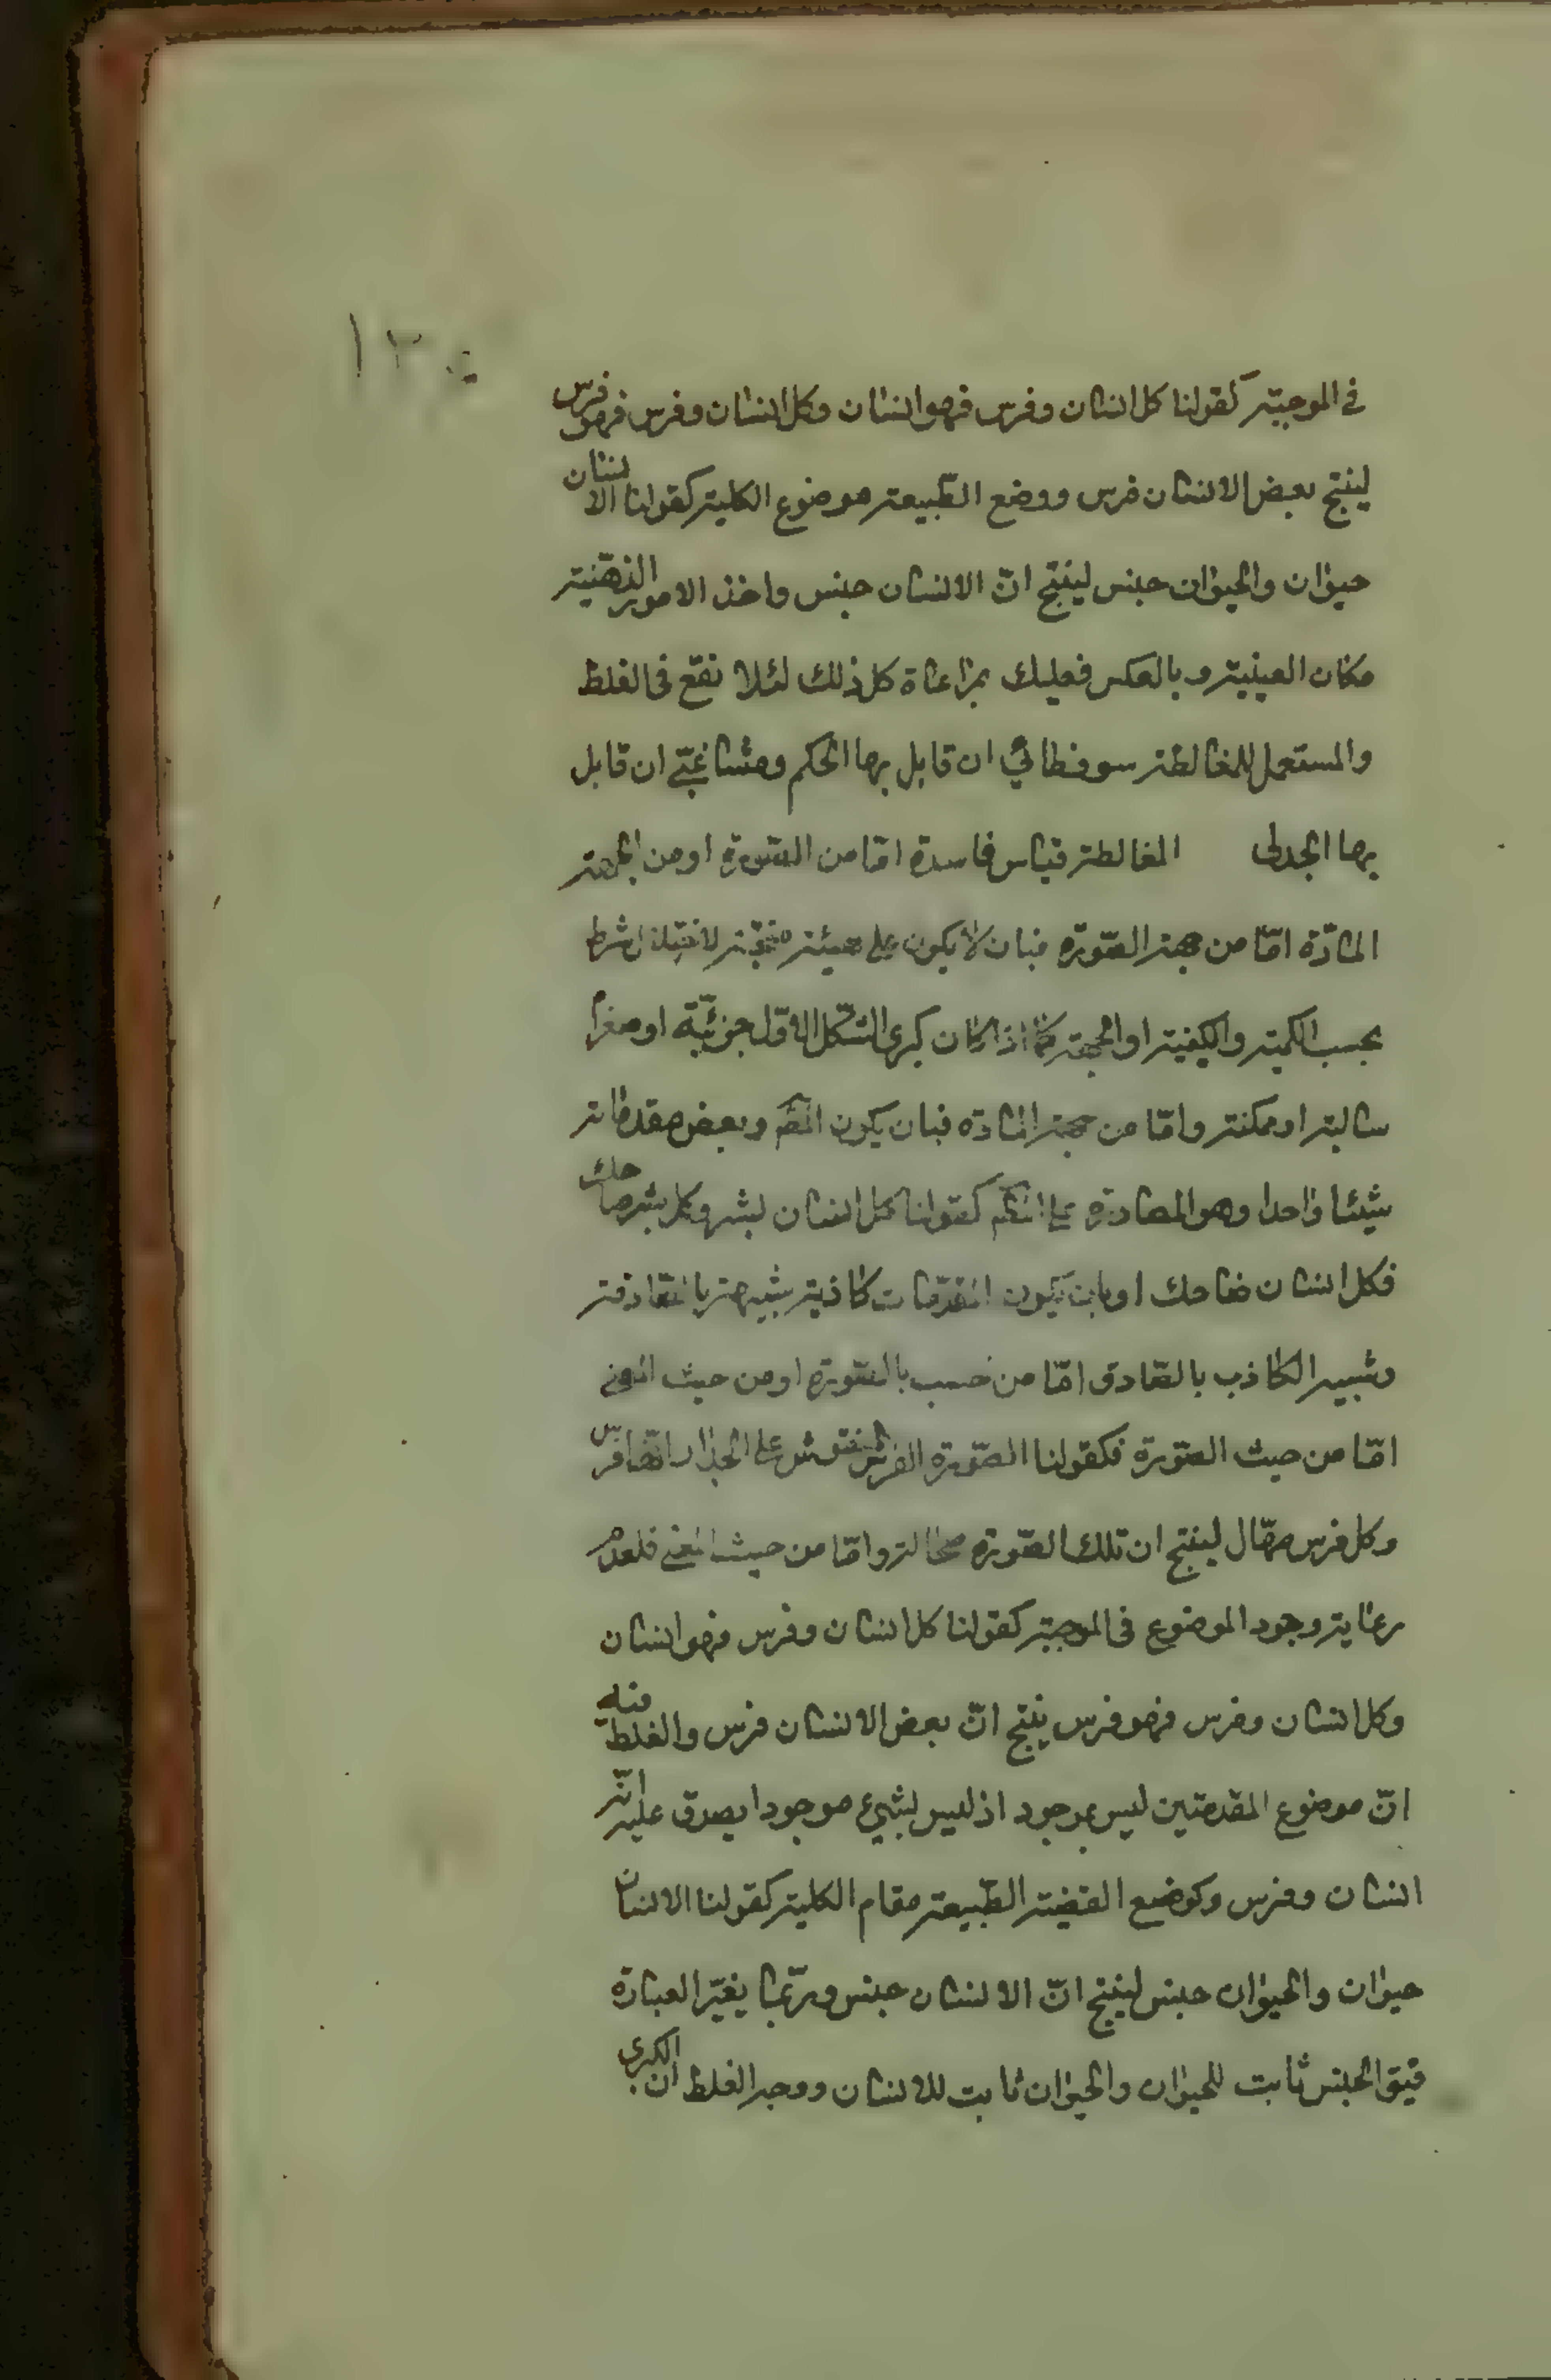 ١٣٠
فى الموجبة كقولنا كل انسان وفرس فهو انسان وكل انسان وفرس فهو فرس
لينتج بعض الانسان فرس ووضع الطبيعة موضوع الكلية كقولنا الانسان
حيوان والحيوان جنس لينتج انّ الانسان جنس واخذ الامور الذهنية
مكان العينية وبالعكس فعليك بمراعاة كل ذلك لئلا تقع فى الغلط
والمستعمل للمغالطة سوفطائي ان قابل بها الحكم ومشاغبى ان قابل
بها الجدلى المغالطة قياس فاسدة امّا من الصورة او من الجهة
المادّة امّا من جهة الصّورة فبان لا يكون على هيئة منتجة لاختلال شرط
بحسب الكمية والكيفية او الجهة كما اذا كان كبرى الشكل الاوّل جزئيّة او صغراه
سالبة او ممكنة وامّا من جهة المادّة فبان يكون المط وبعض مقدماته
شيئا واحدا وهو المصادرة على المط كقولنا كل انسان بشر وكل بشر ضاحك
فكل انسان ضاحك او بان يكون المقدّمات كاذبة شبيهة بالصّادقة
وشبيه الكاذب بالصّادق امّا من حسب بالصّورة او من حيث المعنى
امّا من حيث الصورة فكقولنا الصّورة الفرس المنقوش على الجدار انّها فرس
وكل فرس صهّال لينتج ان تلك الصّورة صهالة وامّا من حيث المعنى فلعدم
رعاية وجود الموضوع فى الموجبة كقولنا كل انسان وفرس فهو انسان
وكل انسان وفرس فهو فرس ينتج انّ بعض الانسان فرس والغلط فيه
انّ موضوع المقدمتين ليس بموجود اذ ليس لشيء موجود ا يصدق عليه انّه
انسان وفرس وكوضع القضية الطّبيعة مقام الكلية كقولنا الانسان
حيوان والحيوان جنس لينتج انّ الانسان جنس وربّما يغيّر العبارة
فيق الجنس ثابت للحيوان والحيوان ثابت للانسان ووجه الغلط ان الكبرى